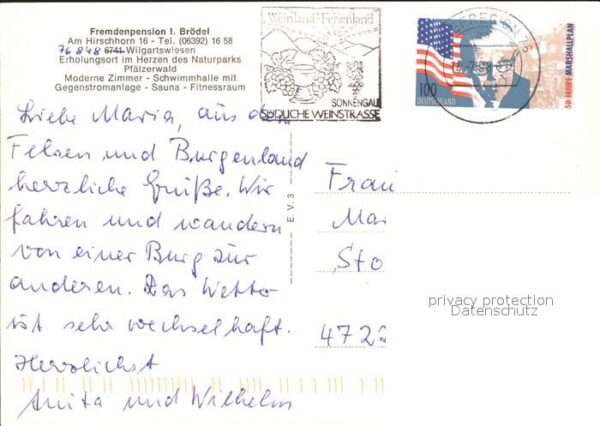 Fremdenpension I. Brödel
Am Hirschhorn 16 - Tel. (06392) 16 58
76 848 6741 Wilgartswiesen
Erholungsort im Herzen des Naturparks
Pfälzerwald
Moderne Zimmer - Schwimmhalle mit
Gegenstromanlage - Sauna - Fitnessraum
Weinland - Ferienland
SONNENGAU
SÜDLICHE WEINSTRASSE
BRIEFREGION 76
100
DEUTSCHLAND
50 JAHRE MARSHALLPLAN
Liebe Maria, aus dem
Felsen und Burgenland
herzliche Grüße. Wir
fahren und wandern
von einer Burg zur
anderen. Das Wetter
ist sehr wechselhaft.
Herzlichst
Anita und Wilhelm
E.V. 3
Frau
Mar
Sto
4722
privacy protection
Datenschutz